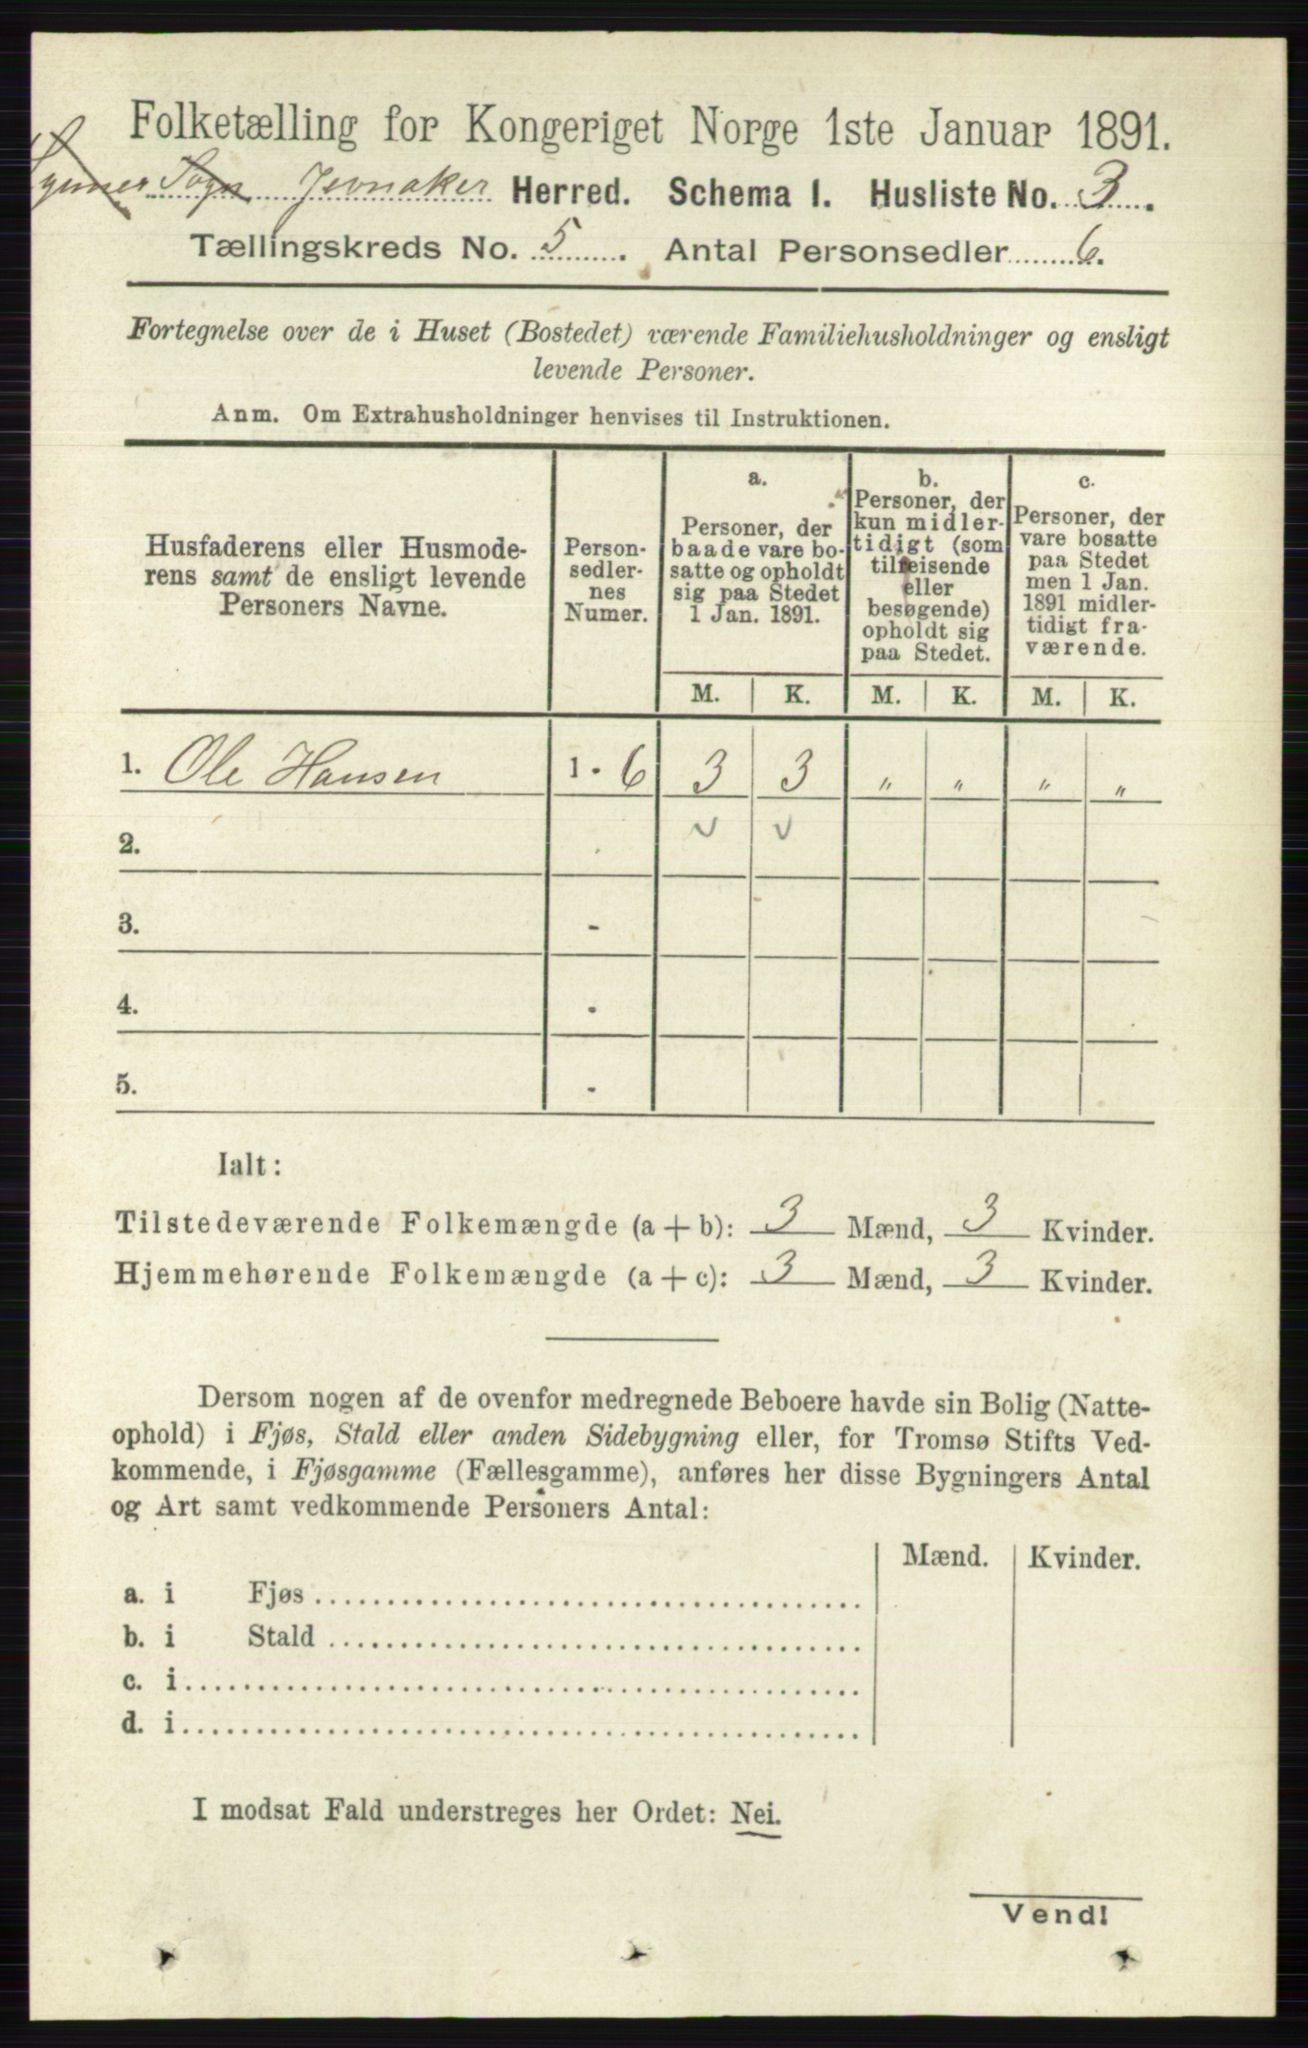 Folketælling for Kongeriget Norge 1ste Januar 1891.
Sogn Jevnaker Herred. Schema I. Husliste No. 3.
Tællingskreds No. 5. Antal Personsedler 6.
Fortegnelse over de i Huset (Bostedet) værende Familiehusholdninger og ensligt
levende Personer.
Anm. Om Extrahusholdninger henvises til Instruktionen.
Husfaderens eller Husmode-
rens samt de ensligt levende
Personers Navne.
Person-
sedler-
nes
Numer.
a.
Personer, der
baade vare bo-
satte og opholdt
sig paa Stedet
1 Jan. 1891.
b.
Personer, der
kun midler-
tidigt (som
tilreisende
eller
besøgende)
opholdt sig
paa Stedet.
c.
Personer, der
vare bosatte
paa Stedet
men 1 Jan.
1891 midler-
tidigt fra-
værende.
M. K. M. K. M. K.
1. Ole Hansen 1 - 6 3 3 " " " "
2. v v
3. -
4. -
5. -
Ialt:
Tilstedeværende Folkemængde (a + b): 3 Mænd, 3 Kvinder.
Hjemmehørende Folkemængde (a + c): 3 Mænd, 3 Kvinder.
Dersom nogen af de ovenfor medregnede Beboere havde sin Bolig (Natte-
ophold) i Fjøs, Stald eller anden Sidebygning eller, for Tromsø Stifts Ved-
kommende, i Fjøsgamme (Fællesgamme), anføres her disse Bygningers Antal
og Art samt vedkommende Personers Antal:
Mænd. Kvinder.
a. i Fjøs
b. i Stald
c. i
d. i
I modsat Fald understreges her Ordet: Nei.
Vend!